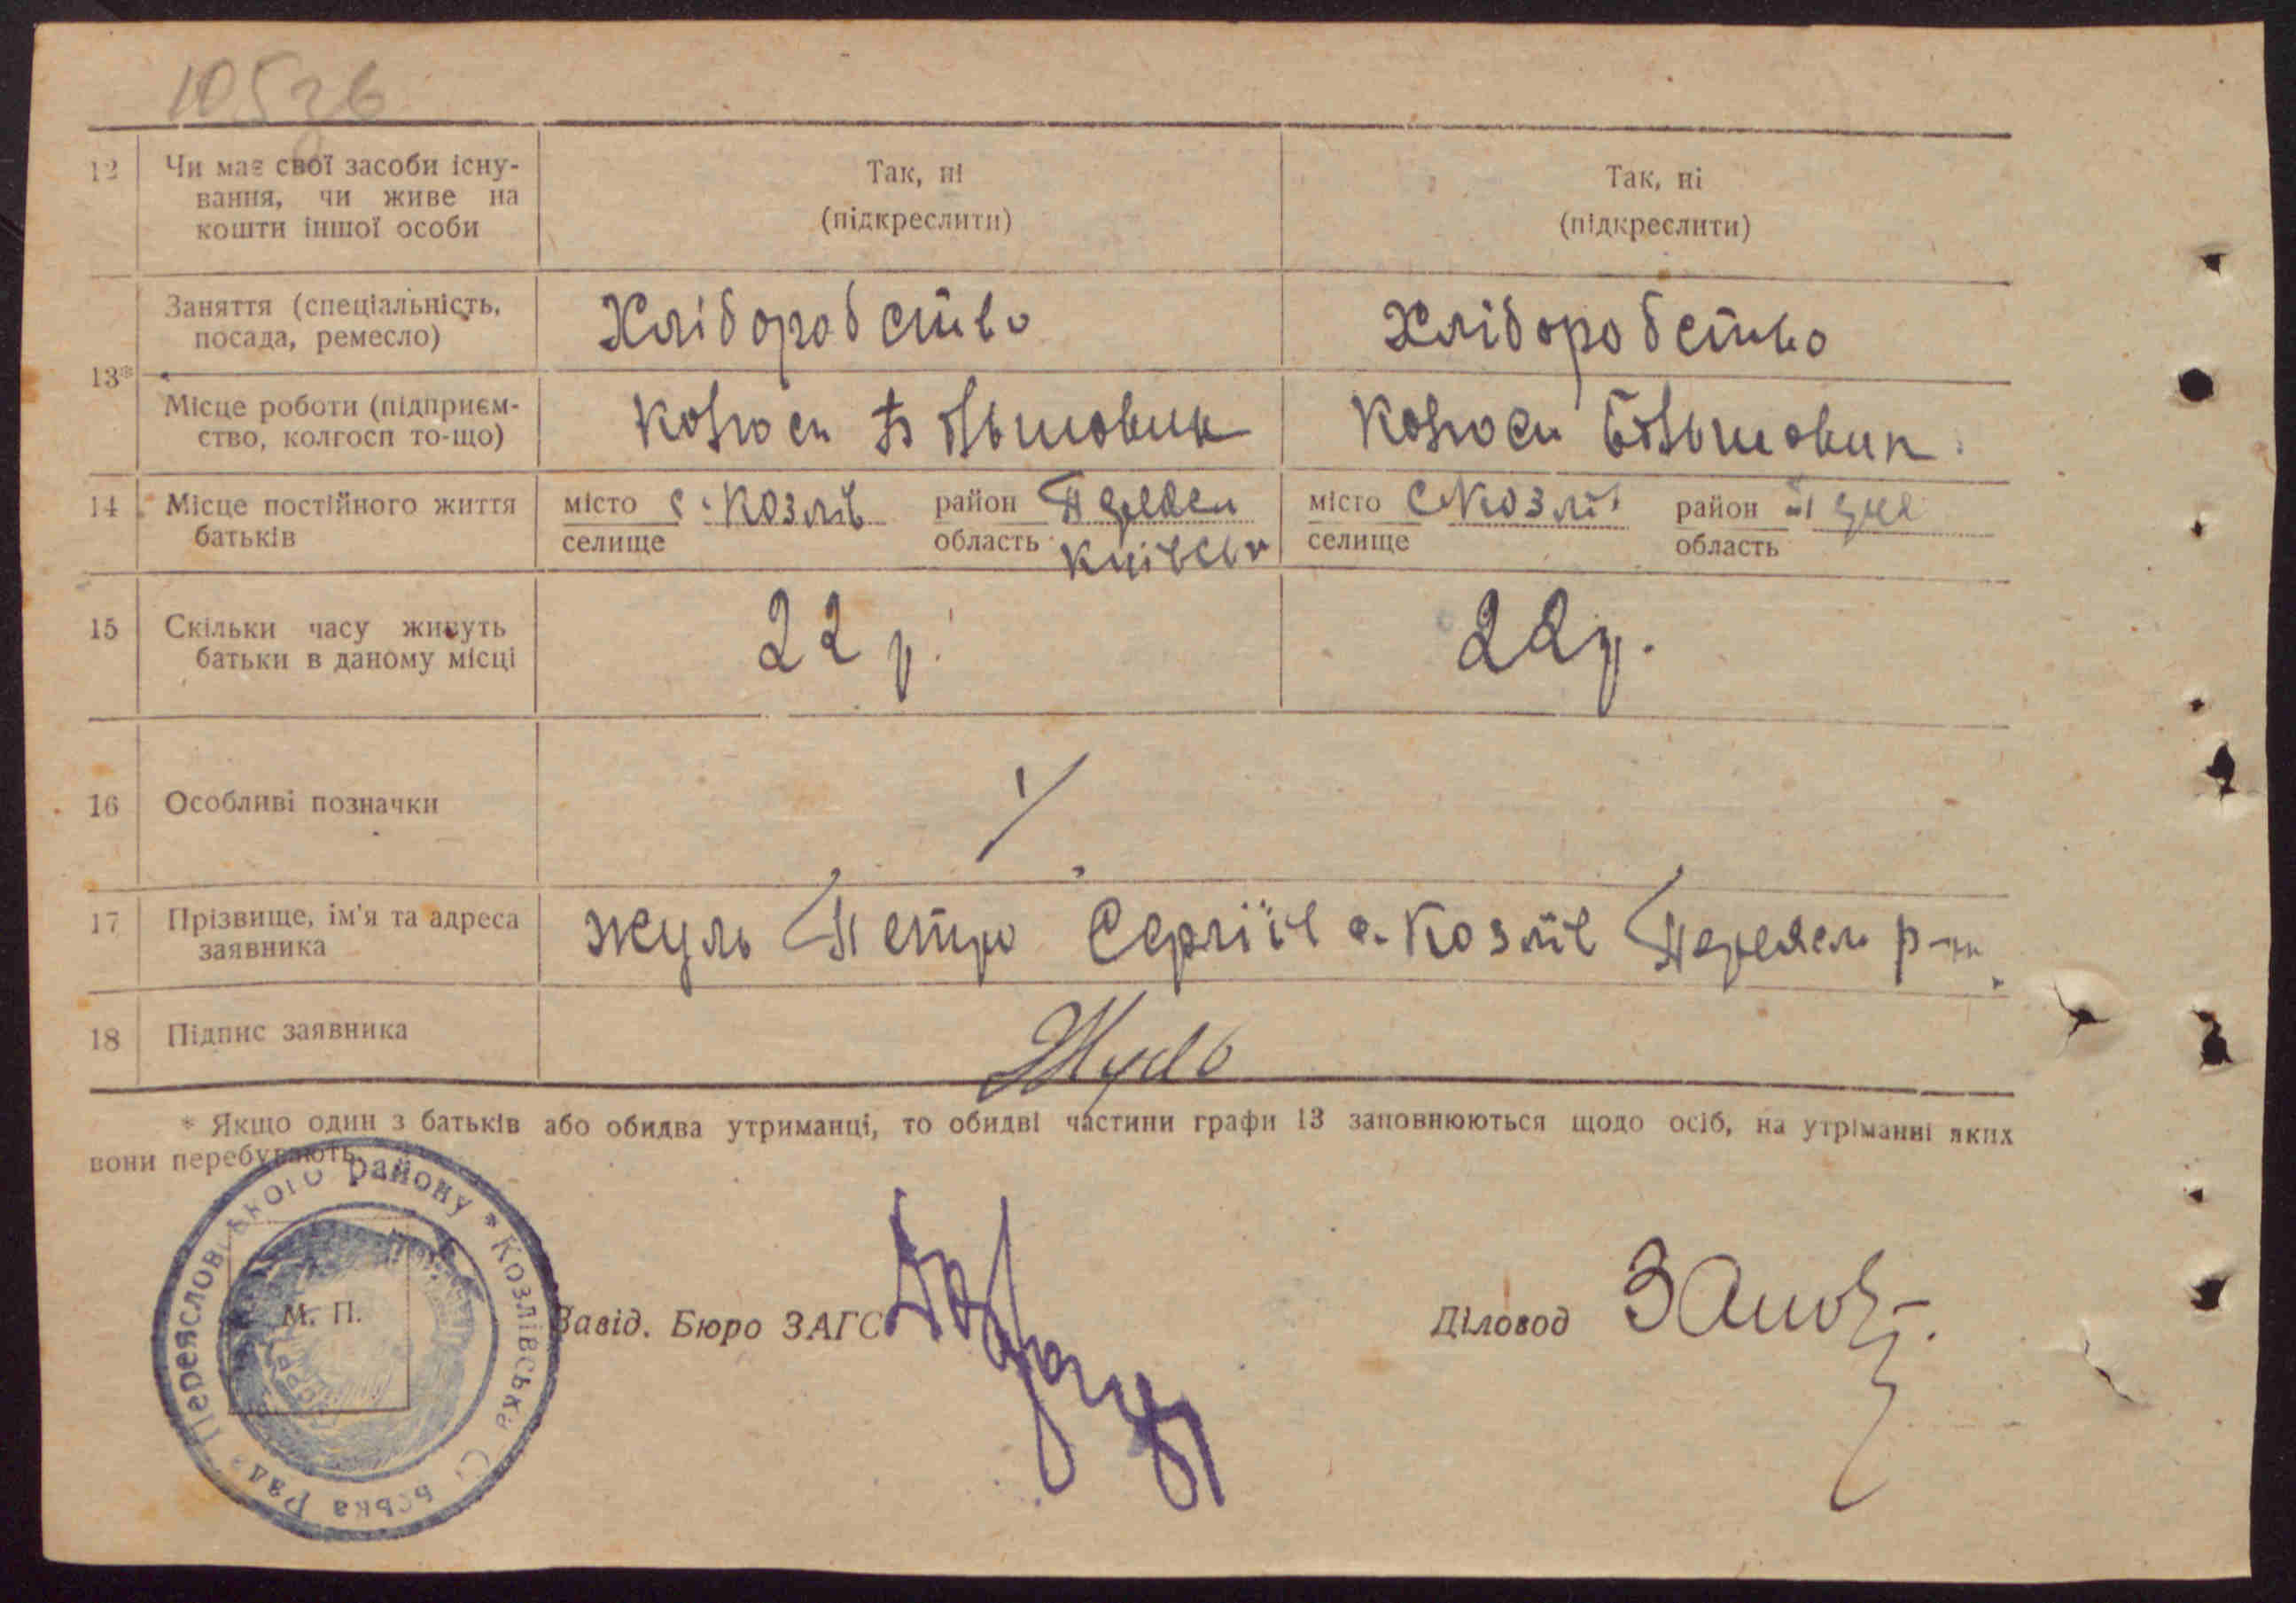 10526
12 Чи має свої засоби існу-
вання, чи живе на
кошти іншої особи
Так, ні
(підкреслити)
Так, ні
(підкреслити)
13*
Заняття (спеціальність,
посада, ремесло)
Хліборобство
Хліборобство
Місце роботи (підприєм-
ство, колгосп то-що)
Колгосп Більшовик
Колгосп Більшовик
14 Місце постійного життя
батьків
місто с. Козлів район Переясл
селище область Київськ
місто с. Козлів район
селище область
15 Скільки часу живуть
батьки в даному місці
22 р.
22 р.
16 Особливі позначки
17 Прізвище, ім'я та адреса
заявника
Жуль Петро Сергіїв с. Козлів Переясл р-н.
18 Підпис заявника
Жуль
* Якщо один з батьків або обидва утриманці, то обидві частини графи 13 заповнюються щодо осіб, на утріманні яких
вони перебувають.
Переяславського району * Козлівська Сільська Рада
М. П.
Завід. Бюро ЗАГС
Діловод